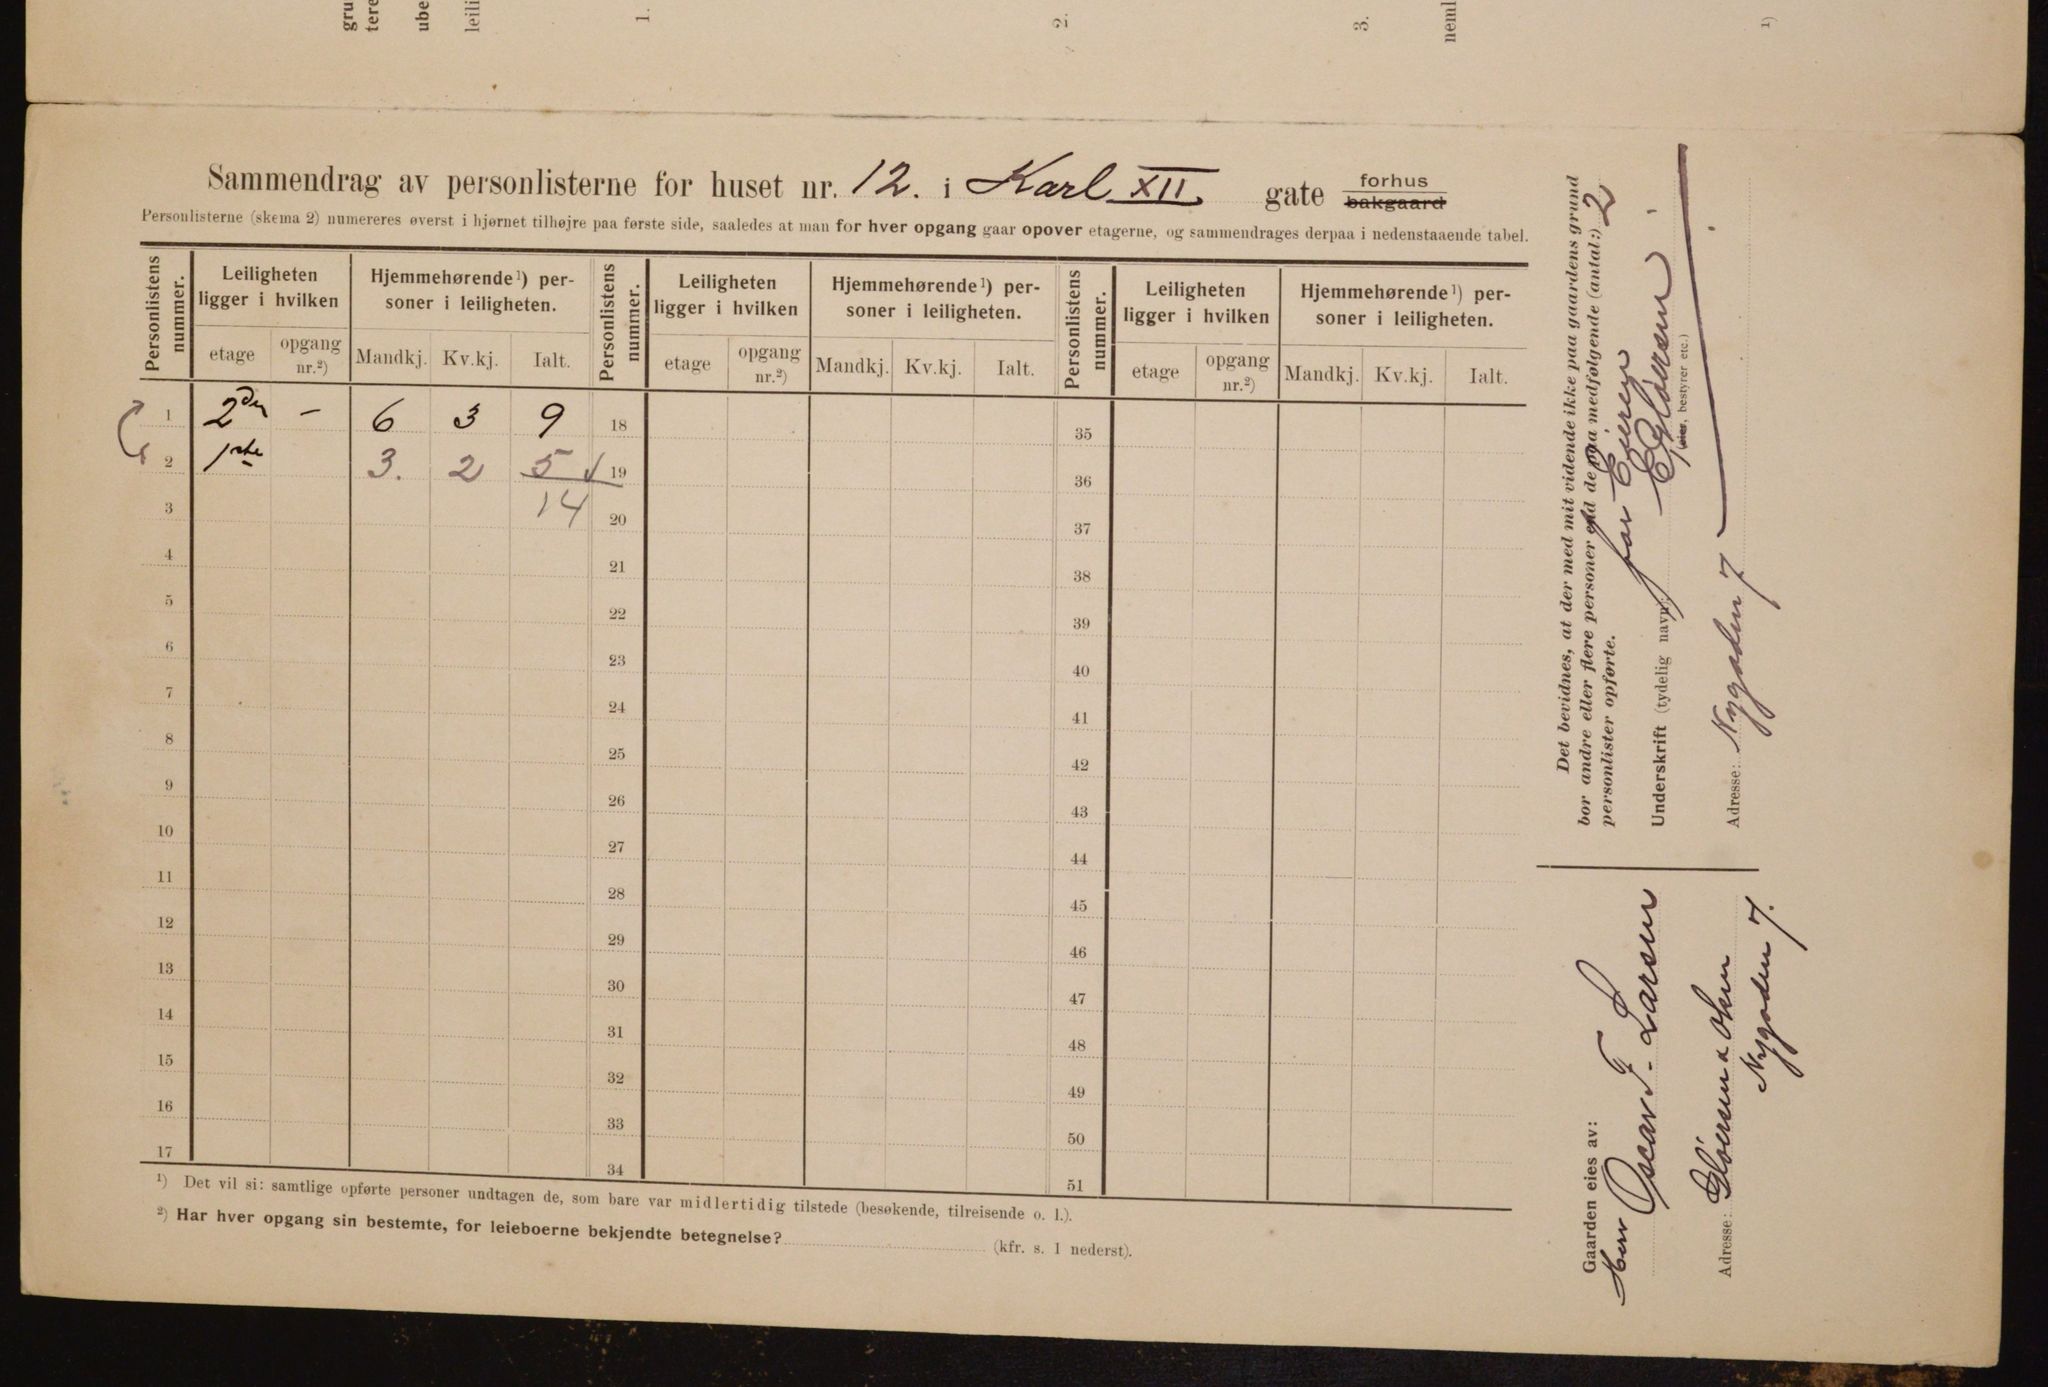 gru
tere
ube
leili
1.
2.
3.
neml
1)
Sammendrag av personlisterne for huset nr. 12. i Karl XII gate forhus bakgaard
Personlisterne (skema 2) numereres øverst i hjørnet tilhøjre paa første side, saaledes at man for hver opgang gaar opover etagerne, og sammendrages derpaa i nedenstaaende tabel.
Personlistens nummer. Leiligheten ligger i hvilken Hjemmehørende¹) personer i leiligheten. Personlistens nummer. Leiligheten ligger i hvilken Hjemmehørende¹) personer i leiligheten. Personlistens nummer. Leiligheten ligger i hvilken Hjemmehørende¹) personer i leiligheten.
etage opgang nr.²) Mandkj. Kv.kj. Ialt. etage opgang nr.²) Mandkj. Kv.kj. Ialt. etage opgang nr.²) Mandkj. Kv.kj. Ialt.
1 2den – 6 3 9 18 35
2 1ste 3. 2 5 19 36
3 14 20 37
4 21 38
5 22 39
6 23 40
7 24 41
8 25 42
9 26 43
10 27 44
11 28 45
12 29 46
13 30 47
14 31 48
15 32 49
16 33 50
17 34 51
¹) Det vil si: samtlige opførte personer undtagen de, som bare var midlertidig tilstede (besøkende, tilreisende o. l.).
²) Har hver opgang sin bestemte, for leieboerne bekjendte betegnelse? (kfr. s. 1 nederst).
Det bevidnes, at der med mit vidende ikke paa gaardens grund
bor andre eller flere personer end de paa medfølgende (antal:) 2
personlister opførte.
for Eieren
Underskrift (tydelig navn): E Gløersen
(eier, bestyrer etc.)
Adresse: Nygaden 7
Gaarden eies av:
Herr Oscar F. Larsen
Adresse: Gløersen & Olsen
Nygaden 7.